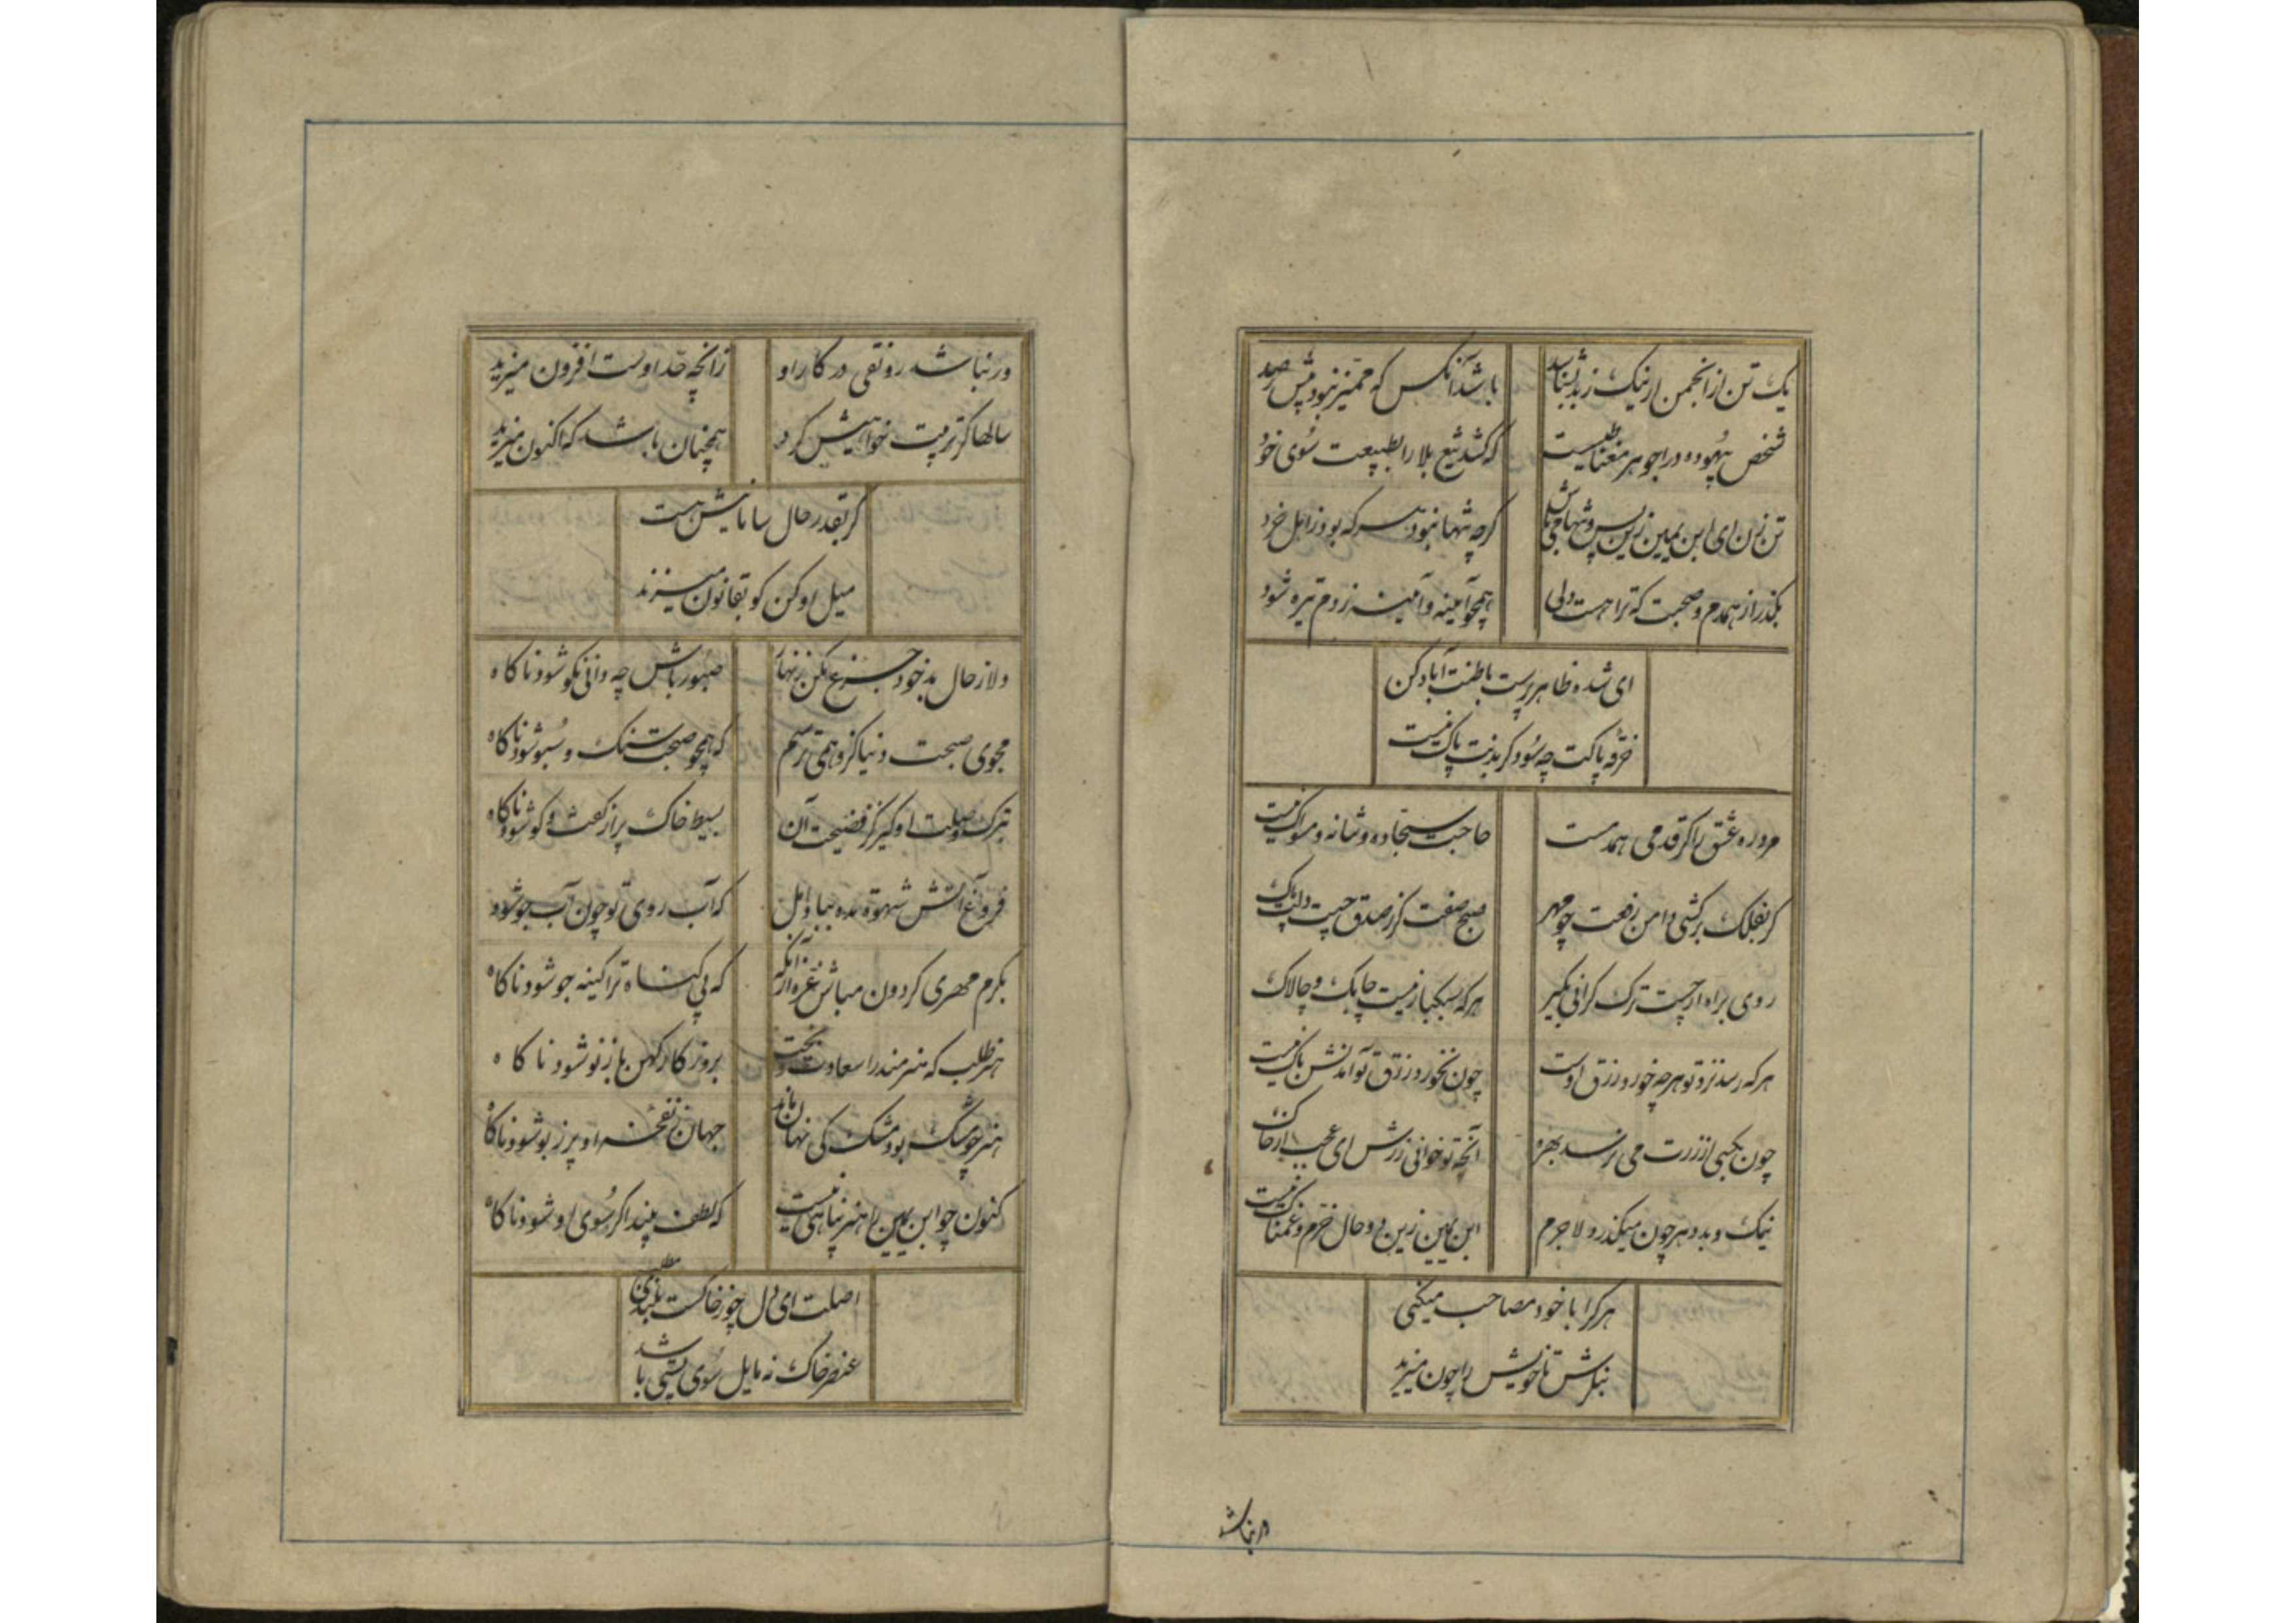 یک تن از انجمن ار نیک ز بد بشناسد باشد آنکس که ممیز نبود پیش ز صد
شخص بیهوده درا جوهر مغناطیسیست که کشد تیغ بلا را بطبیعت سوی خود
تن زن ای ابن یمین زین پس و تنها می باش گرچه تنها نبود هر که بود ز اهل خرد
بگذر از همدم و صحبت که ترا هست دلی همچو آیینه و آیینه ز دم تیره شود
ای شده ظاهر پرست باطنت آباد کن
خرقه پاکت چه سود گر بدنت پاک نیست
مرد ره عشق را گر قدمی همدمست حاجت سجاده و شانه و مسواک نیست
گر بفلک برکشی دامن رفعت چو مهر صبح صفت کز صدق جیب دلت پاک
روی براه ار چست ترک گرانی بگیر هر که سبکبار نیست چابک و چالاک
هر که رسد نزد تو هرچه خورد رزق اوست چون نخورد رزق تو آمدنش باک نیست
چون بکسی از زرت می نرسد بهره آنچه تو خوانی زرش ای عجب ار خاک
نیک و بد دهر چون میگذرد لاجرم ابن یمین زین دو حال خرم و غمناک نیست
هر کرا با خود مصاحب میکنی
بنگرش تا خویش را چون میزید
ور نباشد
ور نباشد رونقی در کار او زانچه حد اوست افزون میزید
سالها گر تربیت خواهیش کرد همچنان باشد که اکنون میزید
گر بقدر حال سامانیش هست
میل او کن کو بقانون میزند
دلا ز حال بد خود جزع مکن زنهار صبور باش چه دانی نکو شود ناگاه
مجوی صحبت دنیا کزو همی ترسم که همچو صحبت سنگ و سبو شود ناگاه
بترک وصلت او گیر کز فضیحت آن بسیط خاک پر از گفت و گو شود ناگاه
فروغ آتش شهوة مده بباد امل که آب روی تو چون آب جو شود
بگرم مهری گردون مباش غره از آنکه که بی گناه ترا کینه جو شود ناگاه
هنر طلب که هنرمند را سعادت و بخت بروزگار کهن باز نو شود ناگاه
هنر چو مشک بود مشک کی نهان ماند جهان ز نفحه او پر ز بو شود ناگاه
کنون چو ابن یمین را هنر پناهی نیست که لطف بیند اگر سوی او شود ناگاه
اصلت ای دل چو ز خاکست بلندی مطلب
عنصر خاک نه مایل سوی پستی باشد